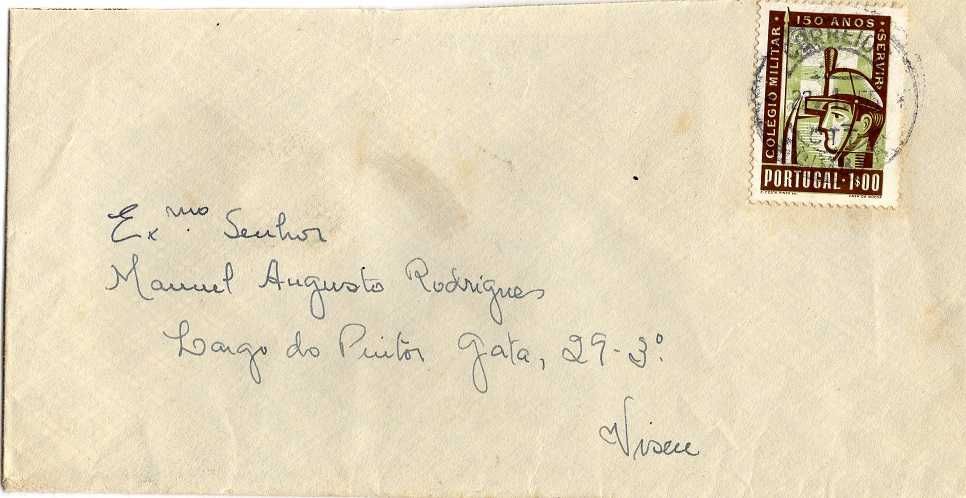 150 ANOS
COLEGIO MILITAR
«SERVIR»
CORREIOS
CTT
PORTUGAL · 1$00
Exmo. Senhor
Manuel Augusto Rodrigues
Largo do Pintor Gata, 29-3º
Viseu